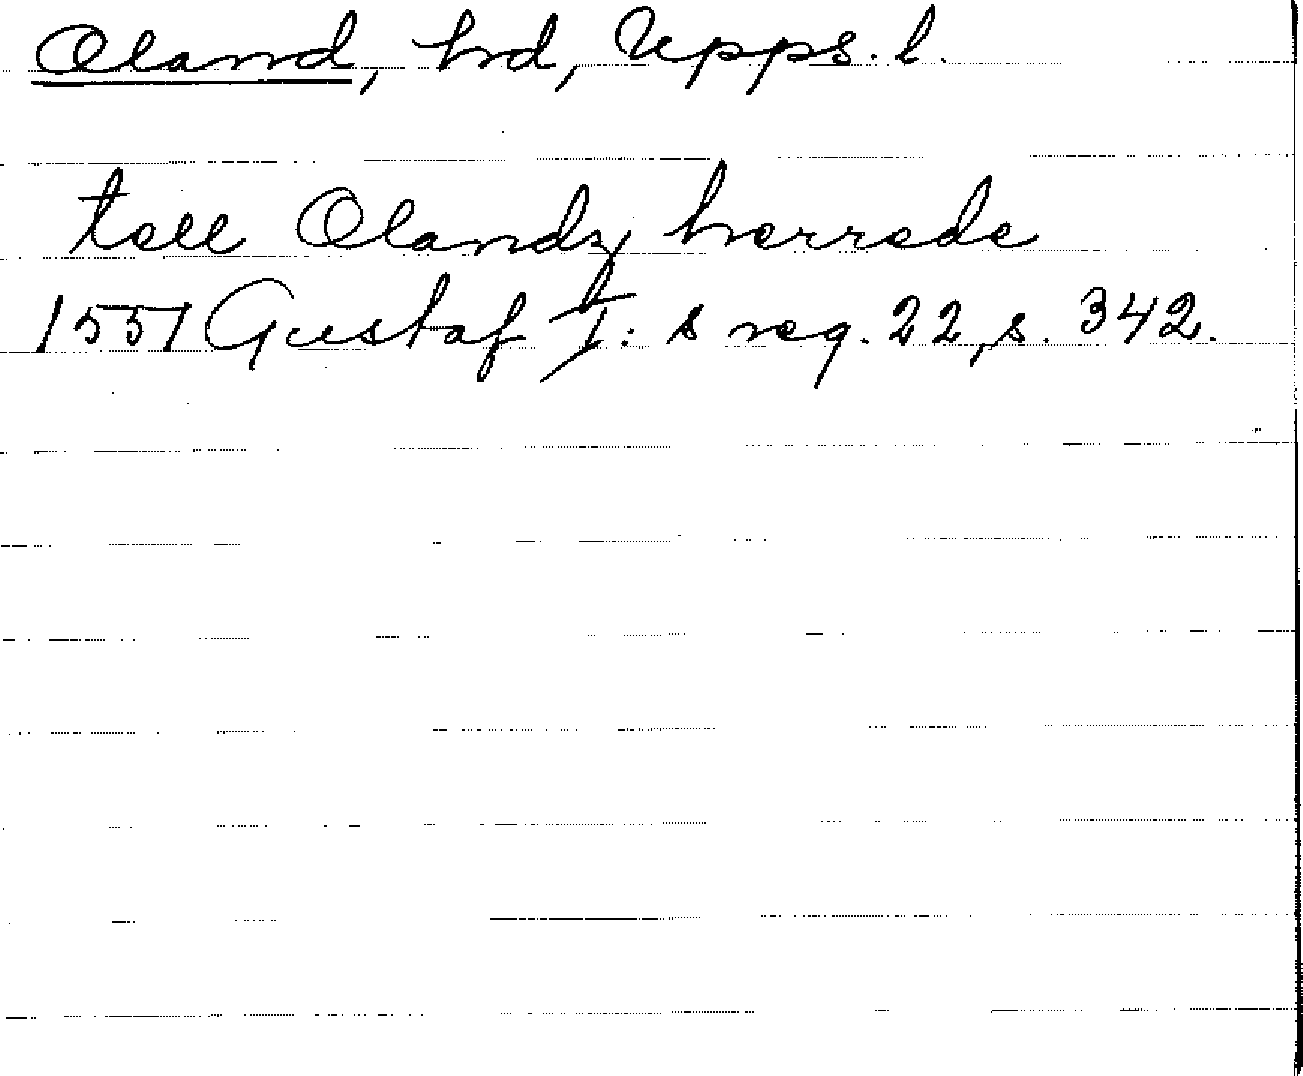 Oland, hd, Upps. l.
tell Olandz herrede
1551 Gustaf I: s reg. 22, s. 342.